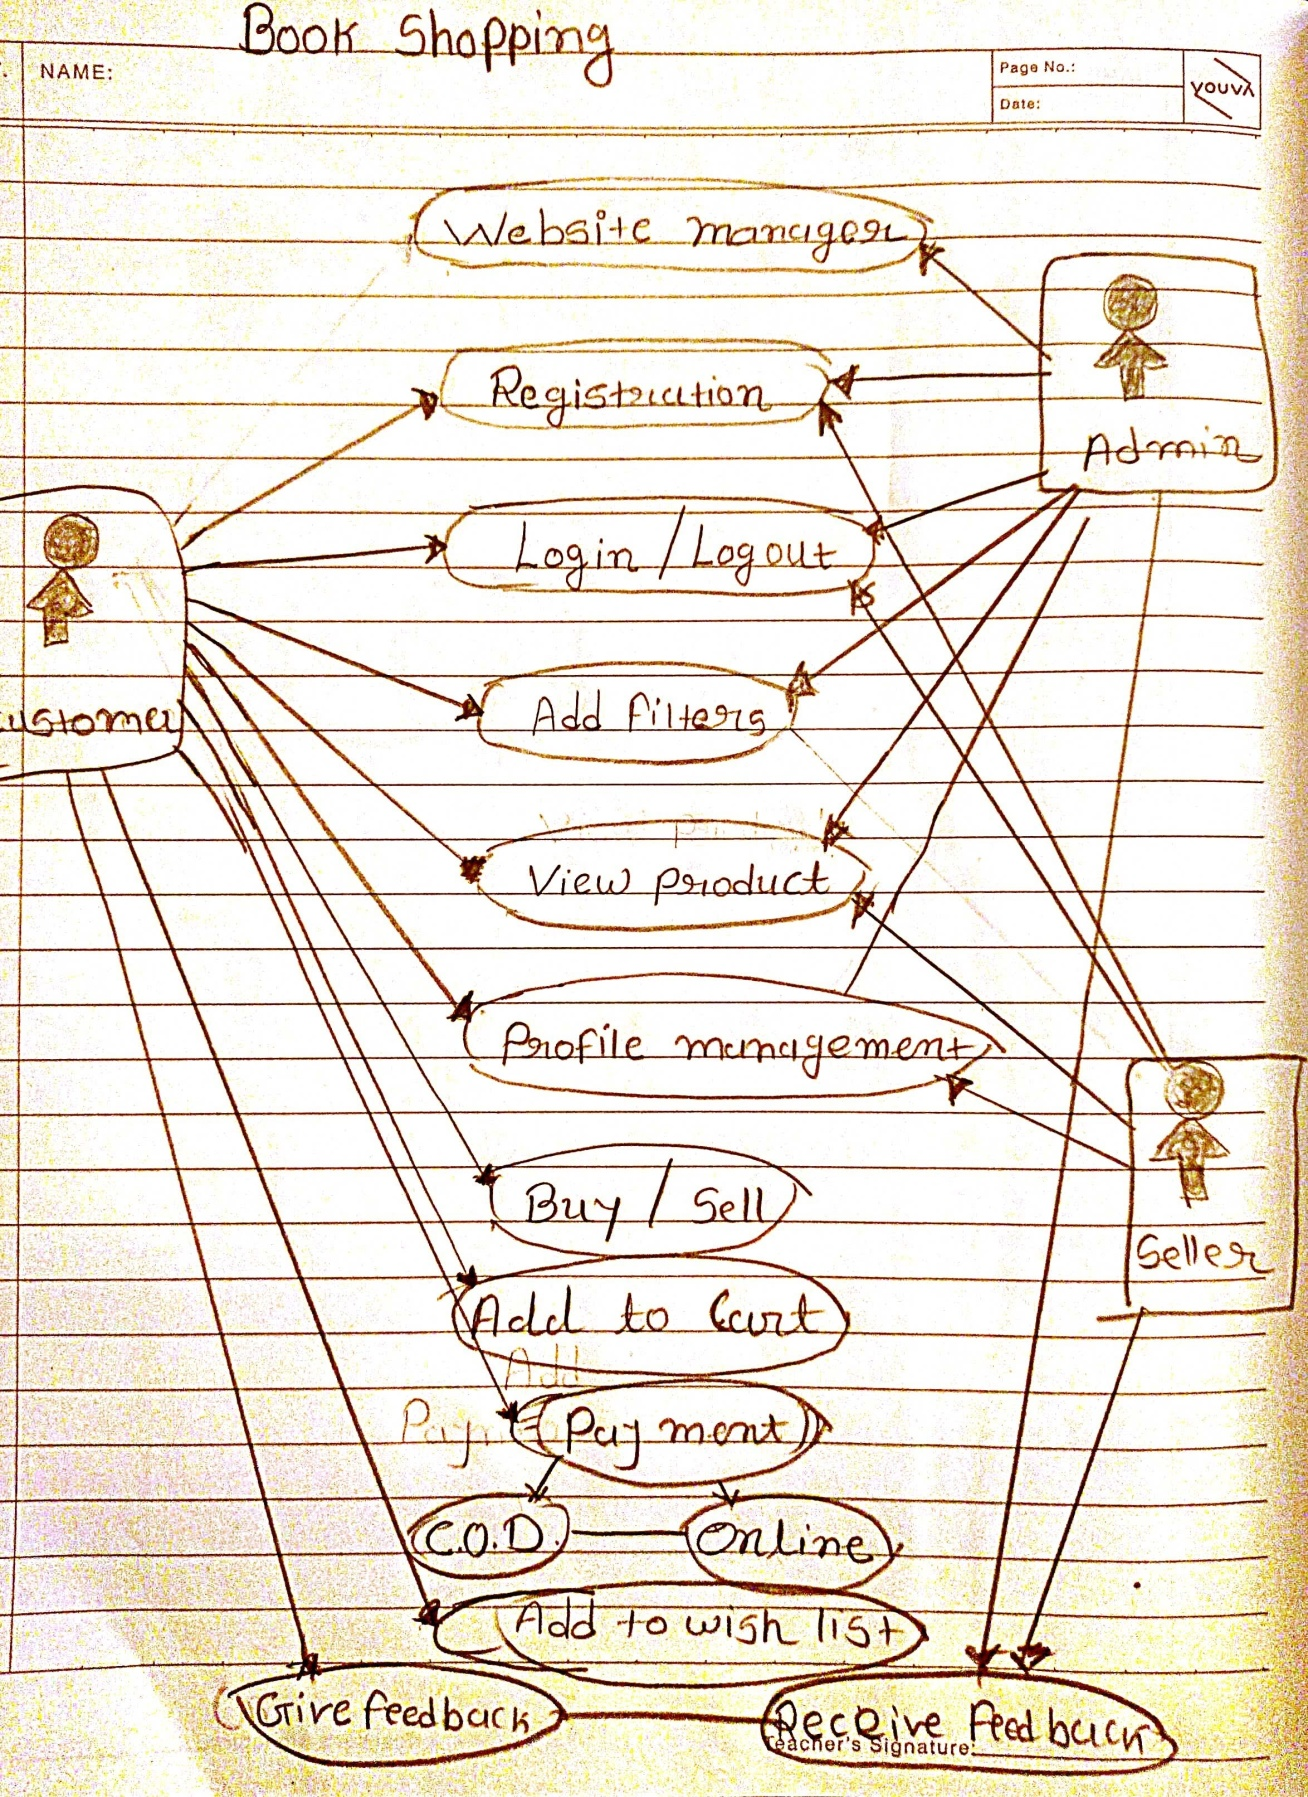 Book Shopping
NAME:
Page No.:
Date:
youva
Website manager
Registration
Admin
Login / Logout
Add filters
customer
View product
Profile management
Buy / Sell
Seller
Add to Cart
Add
Paym
Payment
C.O.D.
Online
Add to wish list
Give feedback
Receive feedback
Teacher's Signature: